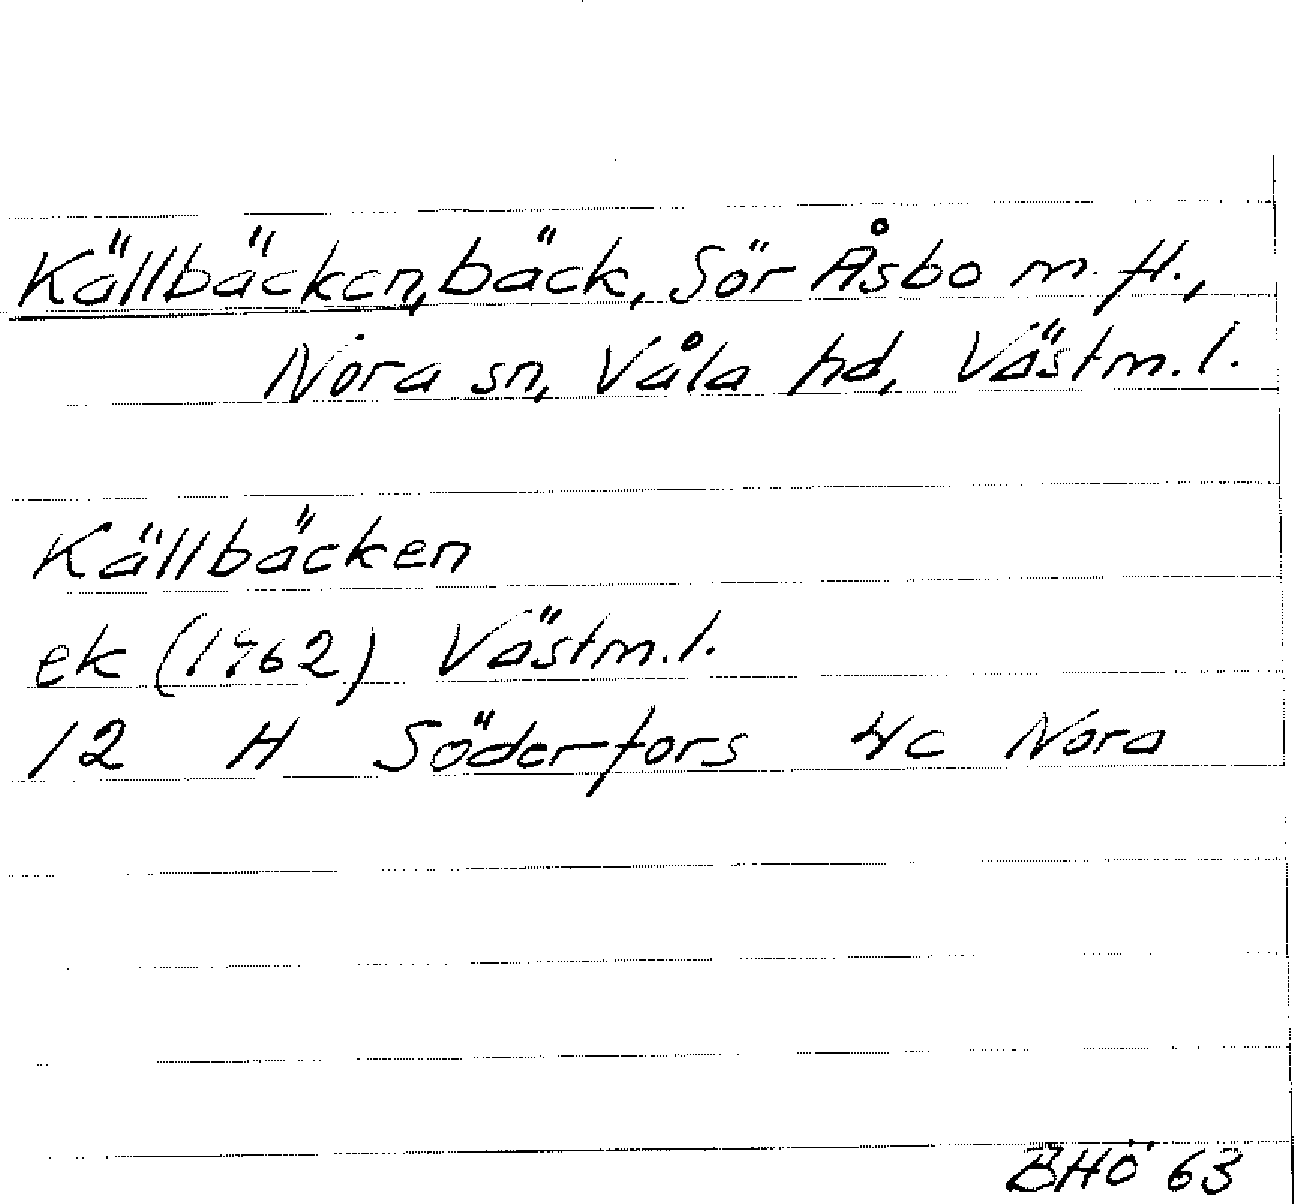 Källbäcken, bäck, Sör Åsbo m. fl.,
Nora sn, Våla hd, Västm. l.
Källbäcken
ek (1962) Västm. l.
12 H Söderfors 4c Nora
BHÖ 63